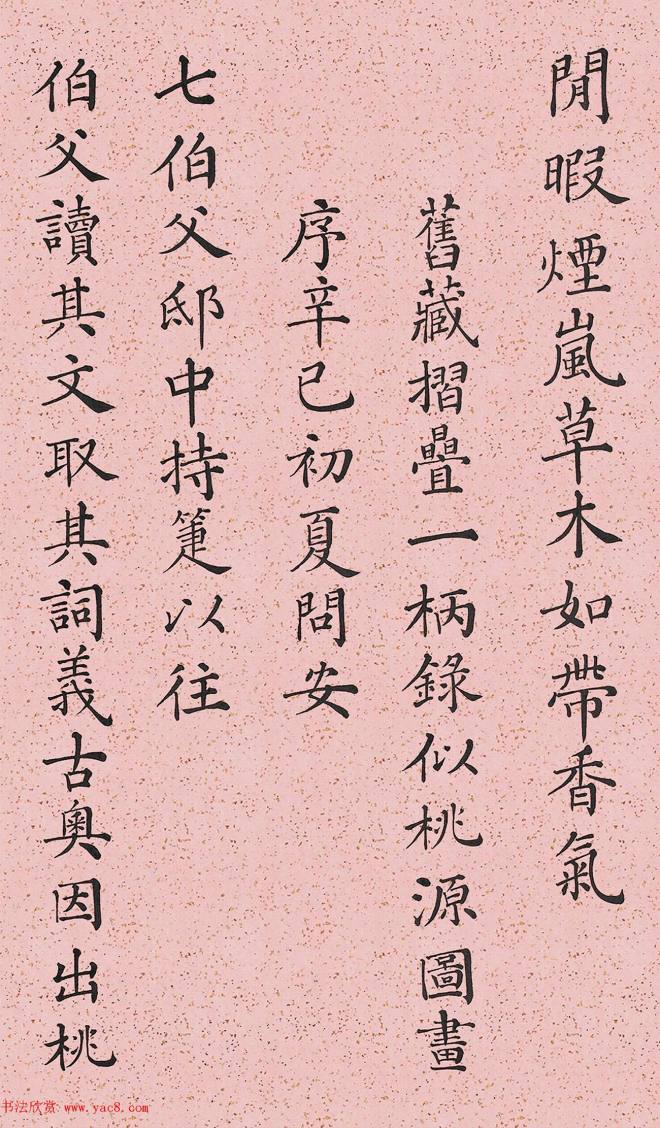 閒暇煙嵐草木如帶香氣
舊藏摺疊一柄錄似桃源圖畫
序辛巳初夏問安
七伯父邸中持箑以往
伯父讀其文取其詞義古奧因出桃
书法欣赏 www.yac8.com